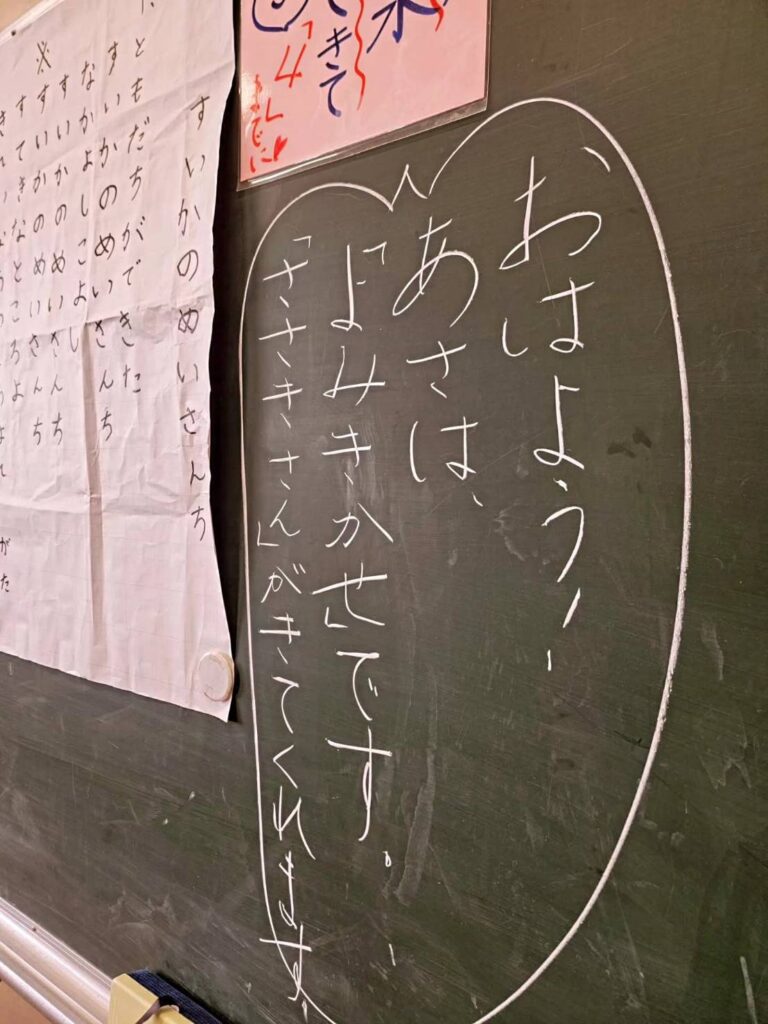 おはよう!
あさは、
「よみきかせ」です。
「ささきさん」がきてくれます
水
きて
「4」
までに
すいかのめいさんち
ともだちができた
すいかのめいさんち
なかよしこよし
すいかのめいさんち
※すいかのめいさんち
すてきなところよ
がた